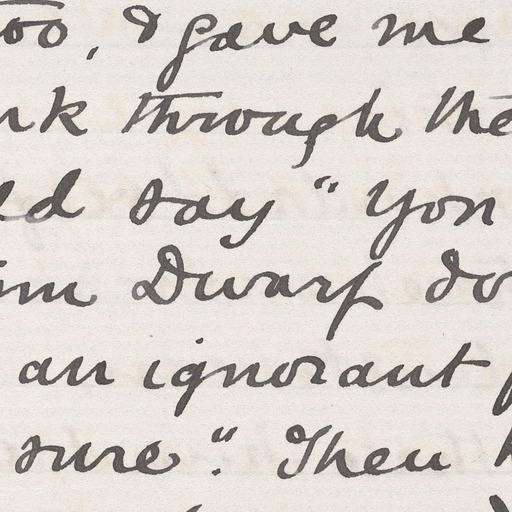 too, & gave me
rk through the
ld say "You
im Dwarf do
an ignorant
sure". Then